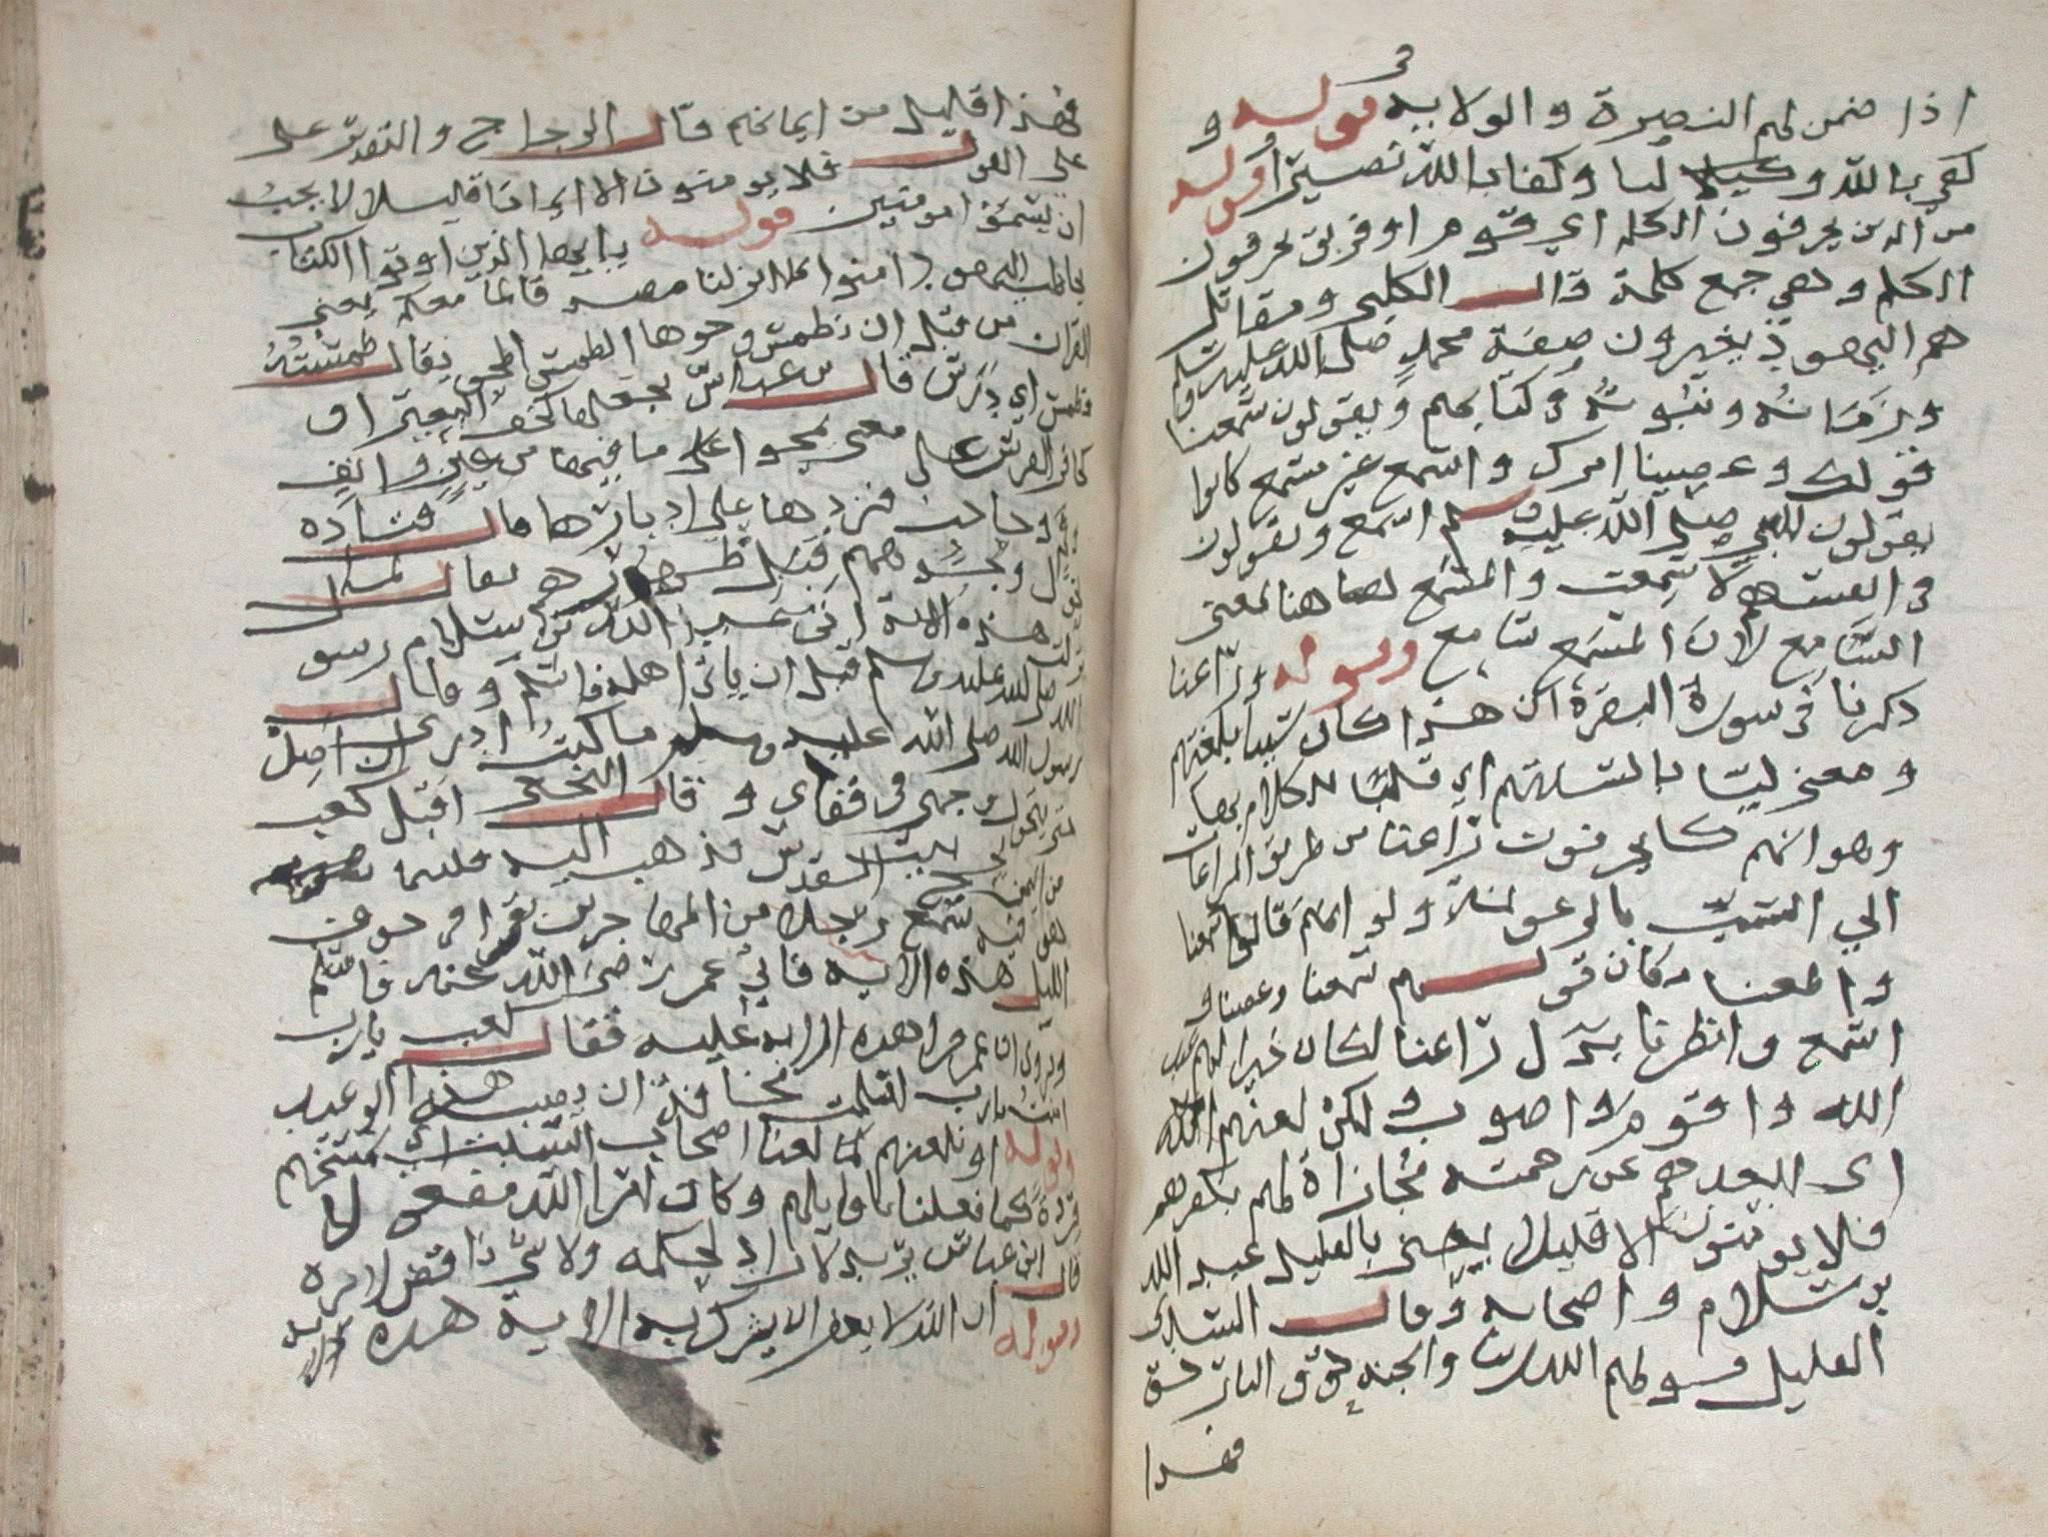 اذا ضمن لهم النصرة والولاية قوله و
كفى بالله وكيلا لنا وكفا بالله نصيرا قوله
من الذين يحرفون الكلم اي قوم او فريق يحرفون
الكلم وهي جمع كلمة قال الكلبي ومقاتل
هم اليهود يغيرون صفة محمد صلى الله عليه وسلم
وزمانه ونبوته وكتابهم ويقولون سمعنا
قولك وعصينا امرك واسمع غير مسمع كانوا
يقولون للنبي صلى الله عليه وسلم اسمع ويقولون
في انفسهم لا سمعت والمسمع هاهنا بمعنى
السامع لان المسمع سامع وقوله وراعنا
ذكرنا في سورة البقرة ان هذا كان سبا بلغتهم
ومعنى ليا بالسنتهم اي قلبا للكلام بها
وهو انهم كا يحرفون راعنا من طريق المراعات
الي السب بالرعونة ولو انهم قالوا سمعنا
واطعنا مكان قولهم سمعنا وعصينا و
اسمع وانظرنا بدل راعنا لكان خيرا لهم عند
الله واقوم واصوب ولكن لعنهم الله
اى ابعدهم عن رحمته مجازاة لهم بكفرهم
فلا يومنون الا قليلا يعني بالقليل عبد الله
بن سلام واصحابه وقال
القليل قولهم الله ربنا والجنة حق والنار حق
فهذا
فهذا قليل من ايمانهم قال الزجاج والتقدير على
على القول فلا يومنون الا ايمانا قليلا لا يجب
ان يسمو امومنين قوله يايها الذين اوتوا الكتاب
يخاطب اليهود امنوا بما نزلنا مصدقا لما معكم يعني
القران من قبل ان نطمس وجوها الطمس المحو يقال طمسته
فطمس اي درس قال بن عباس نجعلها كخف البعير او
كحافر الفرس على معنى نمحوا على ما فيها من عين وانف
وحاجب فنردها على ادبارها قال قتادة
وجوههم قبل ظهورهم يقال لما
هذه الاية اتى عبد الله بن سلام رسو
الله صلى الله عليه وسلم قبل ان ياتى اهله فاسلم وقال
رسول الله صلى الله عليه وسلم ما كنت ادرى ان اصل
وجهى في قفاى وقال النخعي اقبل كعب
بيت المقدس
سمع رجلا من المهاجرين يقرا في جوف
الليل هذه الاية فاتي عمر رضى الله عنه فاسلم
ويروى ان عمر قرا هذه الاية عليه فقال كعب يارب
يارب اسلمت مخافة ان يصيبه هذا الوعيد
قوله او نلعنهم كما لعنا اصحاب السبت اي نمسخهم
قردة كما فعلنا باوايلهم وكان امر الله مفعولا
قال ابن عباس يريد لا راد لحكمه ولا ناقض لامره
قوله ان الله لا يغفر ان يشرك به الاية هذه